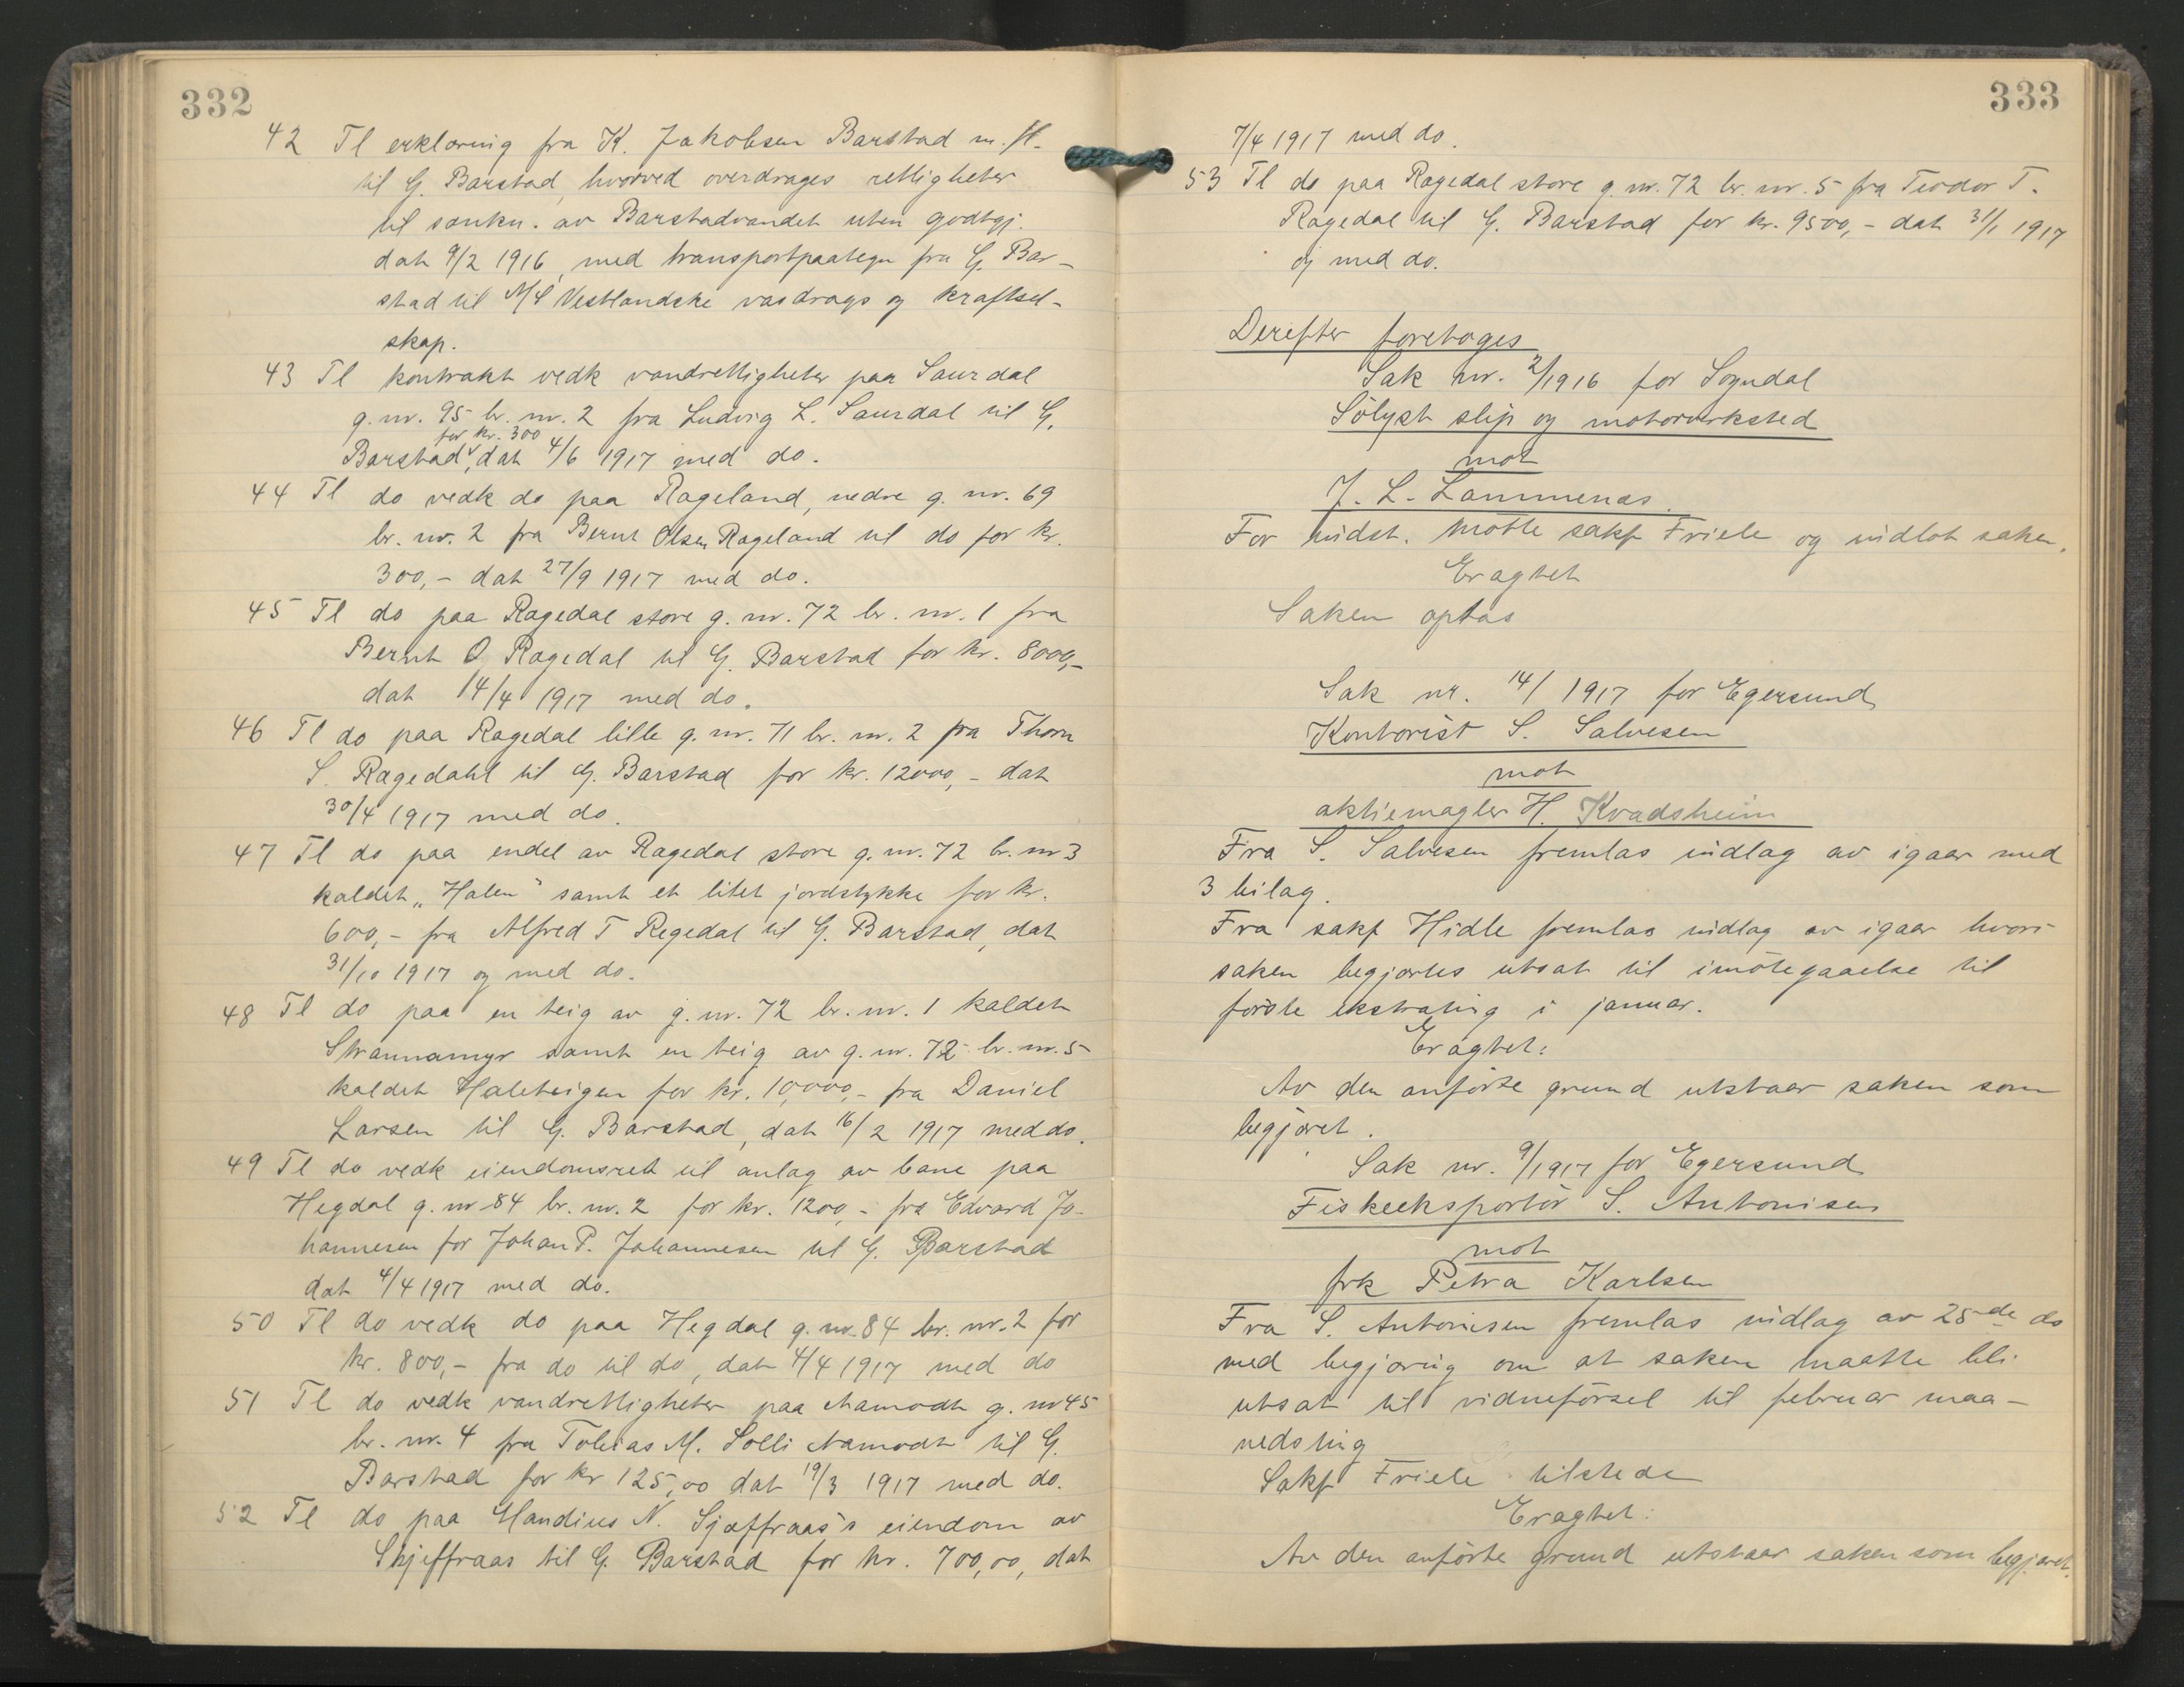 332
42 Tl erklæring fra K. Jakobsen Barstad m. fl.
til G. Barstad, hvorved overdrages rettigheter
til sænkn. av Barstadvandet uten godtgj.
dat 9/2 1916, med transportpaategn fra G. Bar-
stad til A/S Vestlandske vasdrags og kraftsel-
skap.
43 Tl kontrakt vedk vandrettigheter paa Saurdal
g. nr. 95 br. nr. 2 fra Ludvig L. Saurdal til G.
for kr. 300
Barstad, dat 4/6 1917 med do.
44 Tl do vedk do paa Rageland, nedre g. nr. 69
br. nr. 2 fra Bernt Olsen Rageland til do for kr.
300,- dat 27/9 1917 med do.
45 Tl do paa Ragedal store g. nr. 72 br. nr. 1 fra
Bernt O. Ragedal til G. Barstad for kr. 8000,-
dat 14/4 1917 med do.
46 Tl do paa Ragedal lille g. nr. 71 br. nr. 2 fra Thom
S. Ragedahl til G. Barstad for kr. 12000,- dat
30/4 1917 med do.
47 Tl do paa endel av Ragedal store g. nr. 72 br. nr 3
kaldet „Halen" samt et litet jordstykke for kr.
600,- fra Alfred T Regedal til G. Barstad, dat
31/10 1917 og med do.
48 Tl do paa en teig av g. nr. 72 br. nr. 1 kaldet
Strannamyr samt en teig av g. nr. 72 br. nr. 5
kaldet Haleteigen for kr. 10,000,- fra Daniel
Larsen til G. Barstad, dat 16/2 1917 med do.
49 Tl do vedk eiendomsret til anlæg av bane paa
Hegdal g. nr 84 br. nr. 2 for kr. 1200,- fra Edvard Jo-
hannesen for Johan P. Johannesen til G. Barstad
dat 4/4 1917 med do.
50 Tl do vedk do paa Hegdal g. nr. 84 br. nr. 2 for
kr. 800,- fra do til do, dat 4/4 1917 med do
51 Tl do vedk vandrettigheter paa Aamodt g. nr 45
br. nr. 4 fra Tobias M. Solli Aamodt til G.
Barstad for kr 125,00 dat 19/3 1917 med do.
52 Tl do paa Handius N. Sjæffraas's eiendom av
Skjeffraas til G. Barstad for kr. 700,00, dat
333
7/4 1917 med do.
53 Tl do paa Ragedal store g. nr. 72 br. nr. 5 fra Teodor T.
Ragedal til G. Barstad for kr. 9500,- dat 31/1 1917
og med do.
Derefter foretoges
Sak nr. 2/1916 for Sogndal
Sölyst slip og motorverksted
mot
J. L. Lammenæs.
For indst. mötte sakf Friele og indlot saken.
Eragtet
Saken optas
Sak nr. 14/1917 for Egersund
Kontorist S. Salvesen
mot
aktiemægler H. Kvadsheim
Fra S. Salvesen fremlas indlæg av igaar med
3 bilag.
Fra sakf Hidle fremlas indlæg av igaar hvori
saken begjærtes utsat til imötegaaelse til
förste ekstrating i januar.
Eragtet:
Av den anförte grund utstaar saken som
begjæret.
Sak nr. 9/1917 for Egersund
Fiskeeksportör S. Antonisen
mot
frk Petra Karlsen
Fra S. Antonisen fremlas indlæg av 28de ds
med begjæring om at saken maatte bli
utsat til vidneförsel til februar maa-
nedsting
Sakf Friele tilstede
Eragtet:
Av den anförte grund utstaar saken som begjæret.